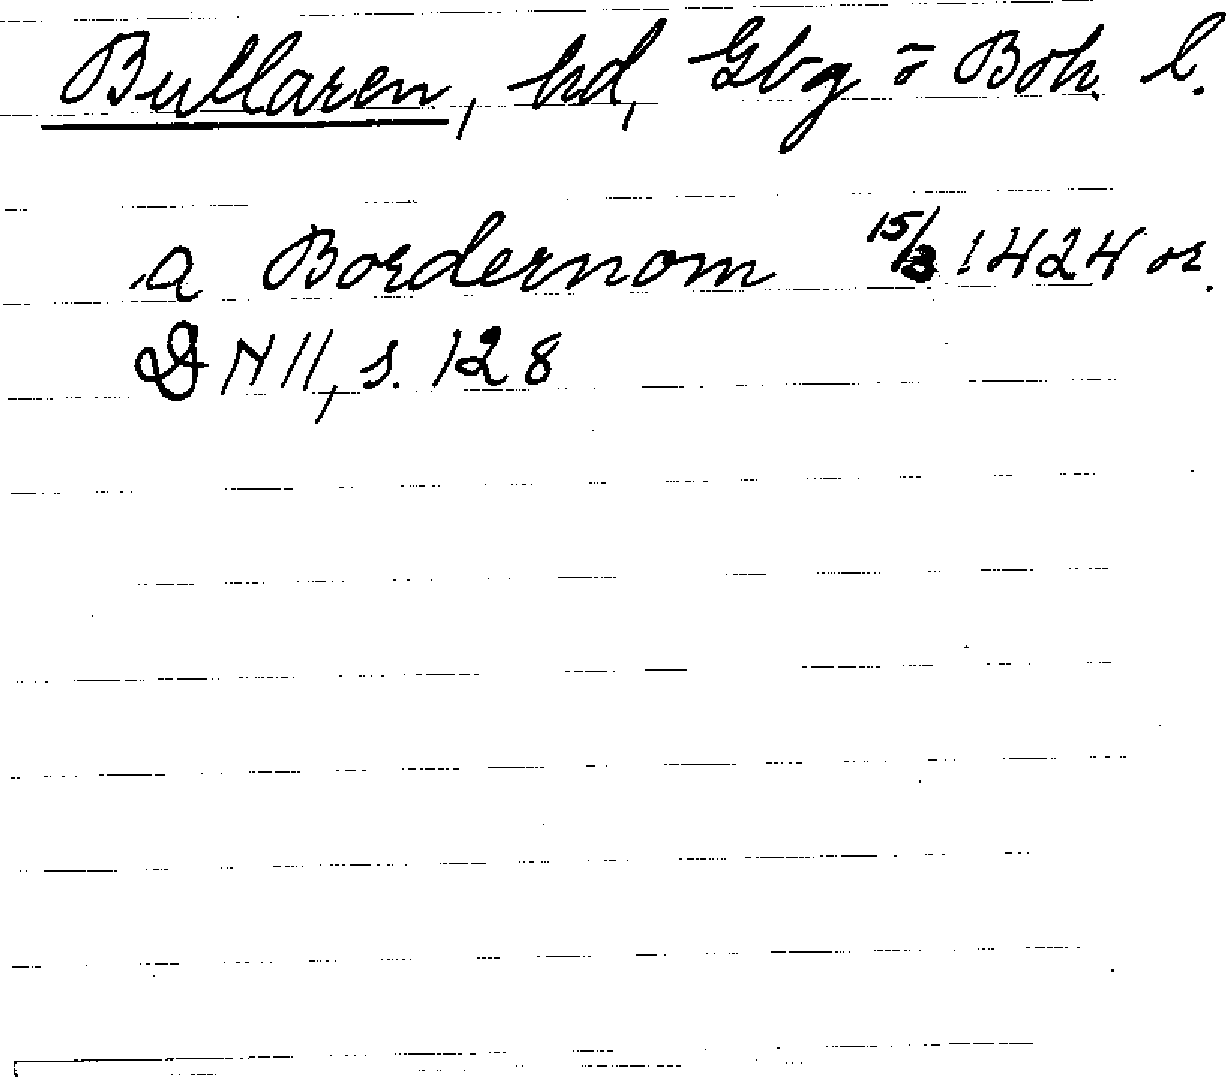 Bullaren, hd, Gbg o Boh. l.
a Bordernom 15/3 1424 or.
DN II, s. 128